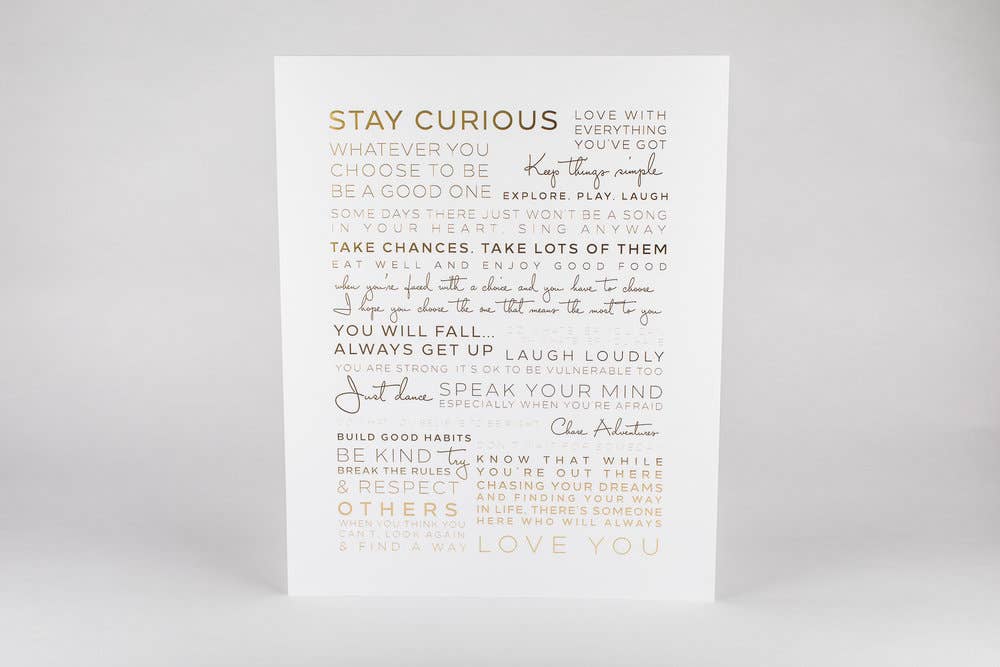 STAY CURIOUS
LOVE WITH
EVERYTHING
YOU'VE GOT
WHATEVER YOU
CHOOSE TO BE
BE A GOOD ONE
Keep things simple
EXPLORE. PLAY. LAUGH
SOME DAYS THERE JUST WON'T BE A SONG
IN YOUR HEART. SING ANYWAY
TAKE CHANCES. TAKE LOTS OF THEM
EAT WELL AND ENJOY GOOD FOOD
when you're faced with a choice and you have to choose
I hope you choose the one that means the most to you
YOU WILL FALL...
ALWAYS GET UP
LAUGH LOUDLY
YOU ARE STRONG IT'S OK TO BE VULNERABLE TOO
Just dance
SPEAK YOUR MIND
ESPECIALLY WHEN YOU'RE AFRAID
Chase Adventures
BUILD GOOD HABITS
BE KIND try
BREAK THE RULES
& RESPECT
OTHERS
WHEN YOU THINK YOU
CAN'T, LOOK AGAIN
& FIND A WAY
KNOW THAT WHILE
YOU'RE OUT THERE
CHASING YOUR DREAMS
AND FINDING YOUR WAY
IN LIFE, THERE'S SOMEONE
HERE WHO WILL ALWAYS
LOVE YOU